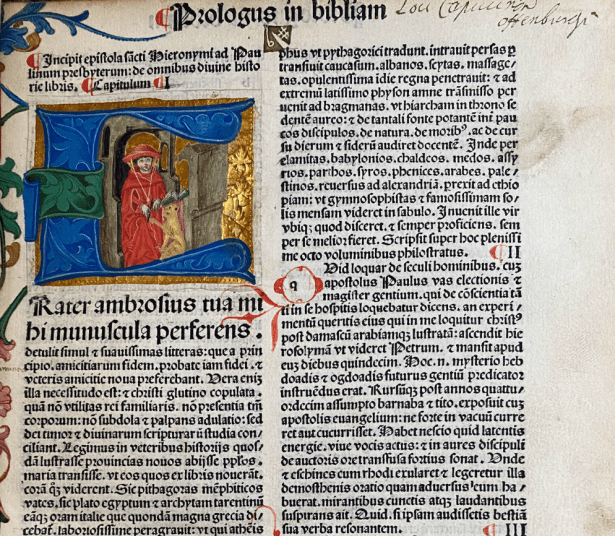 Prologus in bibliam
Lou Capucin
offenburgi
¶Incipit epistola sācti Hieronymi ad Pau
linum presbyterum: de omnibus diuine histo
rie libris. ¶Capitulum ¶I
Rater ambrosius tua mi
hi munuscula perferens.
detulit simul ⁊ suauissimas litteras: que a prin
cipio. amicitiarum fidem. probate iam fidei. ⁊
veteris amicitie noua preferebant. Vera eniȝ
illa necessitudo est: ⁊ christi glutino copulata.
quā nō vtilitas rei familiaris. nō presentia tm̄
corporum: nō subdola ⁊ palpans adulatio: sed
dei timor ⁊ diuinarum scripturaꝝ studia con/
ciliant. Legimus in veteribus historijs quos/
dā lustrasse prouincias nouos adijsse pplos.
maria transisse. vt eos quos ex libris nouerāt.
corā qȝ viderent. Sic pithagoras mēphiticos
vates. sic plato egyptum ⁊ archytam tarentinū
eāqȝ oram italie que quondā magna grecia di/
cebat. laboriosissime peragrauit: vt qui atheīs
phus vt pythagorici tradunt. intrauit persas ꝑ
transiuit caucasum. albanos. scytas. massage/
tas. opulentissima īdie regna penetrauit: ⁊ ad
extremū latissimo physon amne trāsmisso per
uenit ad bragmanas. vt hiarcham in throno se
dentē aureo: ⁊ de tantali fonte potantē int̄ pau
cos discipulos. de natura. de moribꝰ. ac de cur
su dierum ⁊ siderū audiret docentē. Inde per
elamitas. babylonios. chaldeos. medos. assy/
rios. parthos. syros. phenices. arabes. pale/
stinos. reuersus ad alexandriā. prexit ad ethio
piam: vt gymnosophistas ⁊ famosissimam so/
lis mensam videret in sabulo. Inuenit ille vir
vbiqȝ quod disceret. ⁊ semper proficiens. sem
per se melior fieret. Scripsit super hoc plenissi
me octo voluminibus philostratus. ¶II
q Vid loquar de seculi hominibus. cuȝ
apostolus Paulus vas electionis ⁊
magister gentium. qui de cōscientia tā
ti in se hospitis loquebatur dicens. an experi/
mentū queritis eius qui in me loquitur christꝰ
post damascū arabiamqȝ lustratā: ascendit hie
rosolymā vt videret Petrum. ⁊ mansit apud
euȝ diebus quindecim. Hoc.n. mysterio heb
doadis ⁊ ogdoadis futurus gentiū predicator
instruēdus erat. Rursūqȝ post annos quattu/
ordecim assumpto barnaba ⁊ tito. exposuit cuȝ
apostolis euangelium: ne forte in vacuū curre
ret aut cucurrisset. Habet nescio quid latentis
energie. viue vocis actus: ⁊ in aures discipuli
de auctoris ore transfusa fortius sonat. Vnde
⁊ eschines cum rhodi exularet ⁊ legeretur illa
demosthenis oratio quam aduersus eum ha/
buerat. mirantibus cunctis atqȝ laudantibus
suspirans ait. Quid. si ipsam audissetis bestiā
sua verba resonantem. ¶III